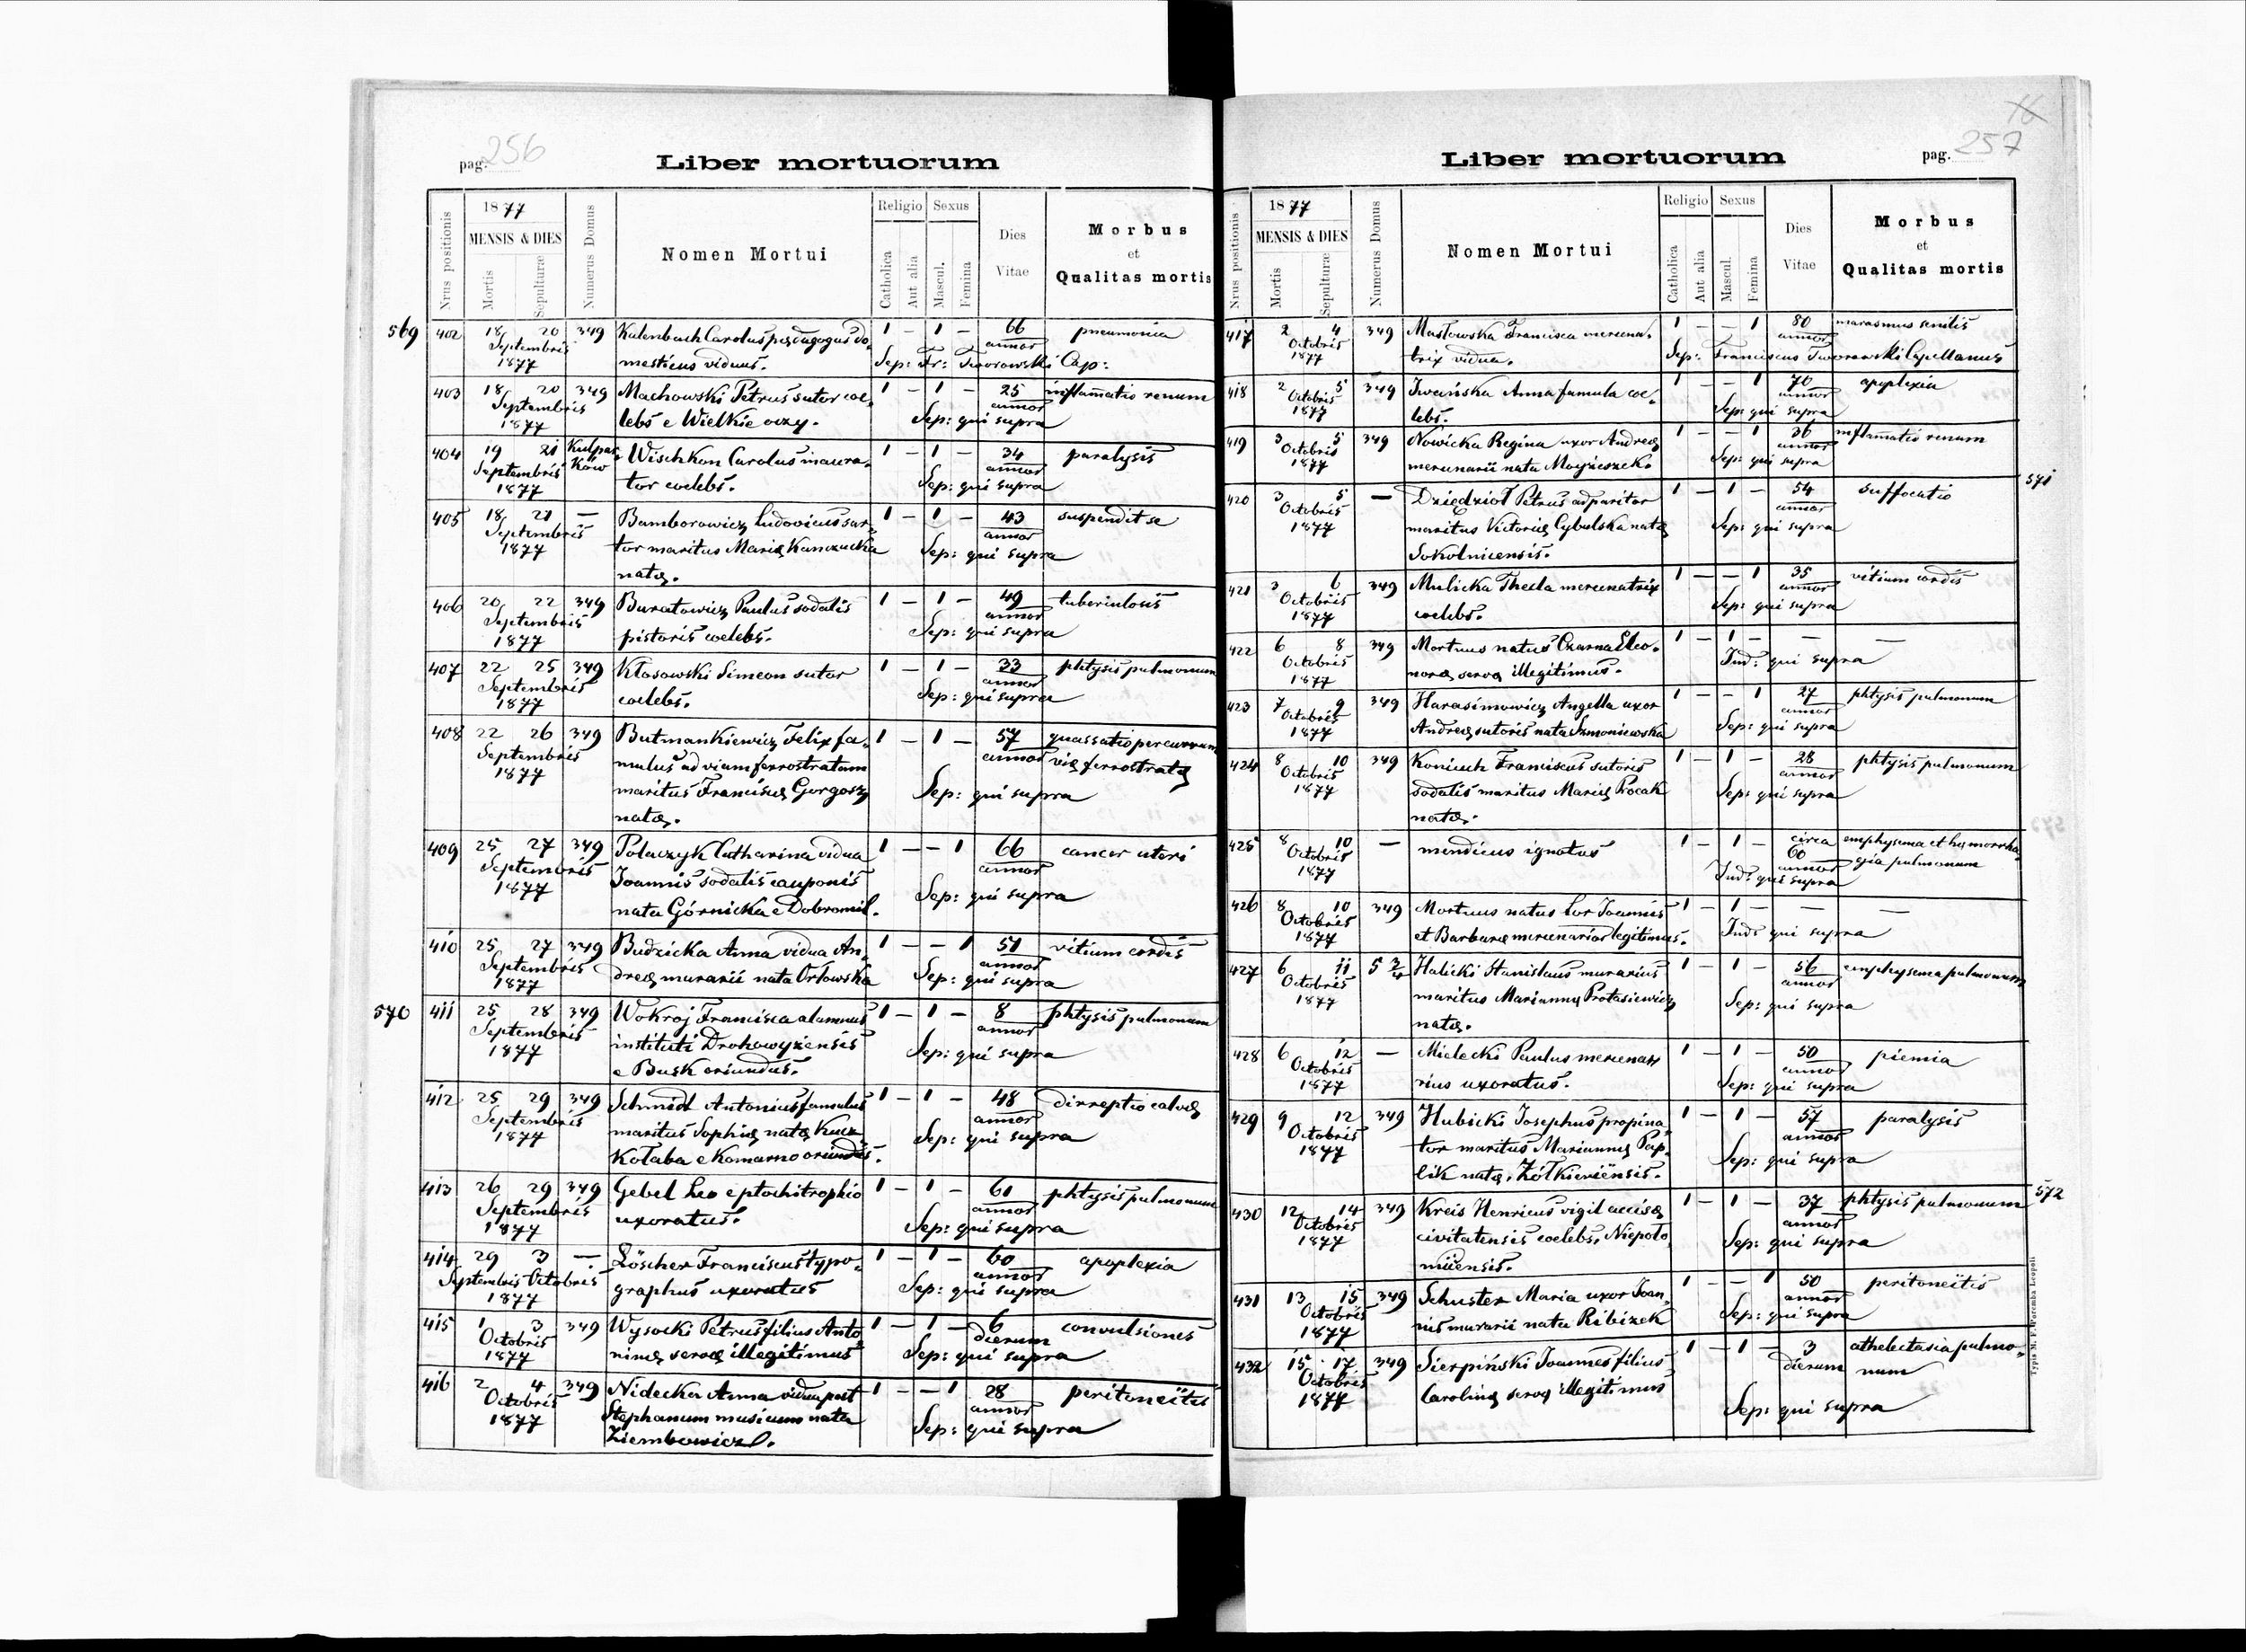 pag. 256
Liber mortuorum
Nrus positionis
1877
MENSIS & DIES
Mortis
Sepulturæ
Numerus Domus
Nomen Mortui
Religio
Catholica
Aut alia
Sexus
Mascul.
Femina
Dies
Vitae
Morbus
et
Qualitas mortis
569 402 18 20 349 Kalenbach Carolus pædagogus do- 1 – 1 – 66 pneumonia
Septembris mesticus viduus. annor
1877 Sep: Fr: Tworowski Cap:
403 18 20 349 Machowski Petrus sutor coe- 1 – 1 – 25 inflamatio renum
Septembris lebs e Wielkie oczy. annor
1877 Sep: qui supra
404 19 21 Kulpar- Wischkon Carolus inaura- 1 – 1 – 34 paralysis
Septembris Ków tor coelebs. annor
1877 Sep: qui supra
405 18 21 — Bamborowicz Ludovicus sar- 1 – 1 – 43 suspendit se
Septembris tor maritus Mariæ Kanczucka annor
1877 natæ. Sep: qui supra
406 20 22 349 Buratowicz Paulus sodalis 1 – 1 – 49 tuberculosis
Septembris pistoris coelebs. annor
1877 Sep: qui supra
407 22 25 349 Kłosowski Simeon sutor 1 – 1 – 33 phtysis pulmonum
Septembris coelebs. annor
1877 Sep: qui supra
408 22 26 349 Butmankiewicz Felix fa- 1 – 1 – 57 quassatio per currum
Septembris mulus ad viam ferrostratam annor viæ ferrostratæ
1877 maritus Franciscæ Gorgosz Sep: qui supra
natæ.
409 25 27 349 Polaczyk Catharina vidua 1 – – 1 66 cancer uteri
Septembris Joannis sodalis cauponis annor
1877 nata Górnicka e Dobromil. Sep: qui supra
410 25 27 349 Budzicka Anna vidua An- 1 – – 1 51 vitium cordis
Septembris dreæ murarii nata Orłowska annor
1877 Sep: qui supra
570 411 25 28 349 Wokroj Francisca alumnus 1 – 1 – 8 phtysis pulmonum
Septembris instituti Drohowyżensis annor
1877 e Busk oriundus. Sep: qui supra
412 25 29 349 Schmidt Antonius famulus 1 – 1 – 48 dirreptio calvæ
Septembris maritus Sophiæ natæ annor
1877 Kołaba e Komarno Sep: qui supra
413 26 29 349 Gebel Leo e ptochitrophio 1 – 1 – 61 phtysis pulmonum
Septembris uxoratus. annor
1877 Sep: qui supra
414 29 3 — Löscher Franciscus typo- 1 – 1 – 60 apoplexia
Septembris Octobris graphus uxoratus annor
1877 Sep: qui supra
415 1 3 349 Wysocki Petrus filius Anto- 1 – 1 – 6 convulsiones
Octobris ninæ servæ illegitimus dierum
1877 Sep: qui supra
416 2 4 349 Nidecka Anna vidua post 1 – – 1 28 peritoneitis
Octobris Stephanum musicum nata annor
1877 Ziembowicz. Sep: qui supra
pag. 257
Liber mortuorum
Nrus positionis
1877
MENSIS & DIES
Mortis
Sepulturæ
Numerus Domus
Nomen Mortui
Religio
Catholica
Aut alia
Sexus
Mascul.
Femina
Dies
Vitae
Morbus
et
Qualitas mortis
417 2 4 349 Masłowska Francisca mercena- 1 – – 1 80 marasmus senilis
Octobris trix vidua. annor
1877 Sep: Franciscus Tworowski Capellanus
418 2 5 349 Iwańska Anna famula coe- 1 – – 1 70 apoplexia
Octobris lebs. annor
1877 Sep: qui supra
419 3 5 349 Nowicka Regina uxor Andreæ 1 – – 1 36 inflamatio renum
Octobris mercenarii nata Moyżeszek. annor
1877 Sep: qui supra
571
420 3 5 — Dziędzioł Petrus adparitor 1 – 1 – 54 suffocatio
Octobris maritus Victoriæ Cybulska natæ annor
1877 Sokolnicensis. Sep: qui supra
421 3 6 349 Mulicka Thecla mercenatrix 1 – – 1 35 vitium cordis
Octobris coelebs. annor
1877 Sep: qui supra
422 6 8 349 Mortuus natus Czarna Eleo- 1 – 1 – — —
Octobris noræ servæ illegitimus. Ind: qui supra
1877
423 7 9 349 Harasimowicz Angella uxor 1 – – 1 27 phtysis pulmonum
Octobris Andreæ sutoris nata Szmoniewska annor
1877 Sep: qui supra
424 8 10 349 Koniuch Franciscus sutoris 1 – 1 – 28 phtysis pulmonum
Octobris sodalis maritus Mariæ Procak annor
1877 natæ. Sep: qui supra
425 8 10 — mendicus ignotus 1 – 1 – circa emphysema et hæmorrha-
Octobris 60 gia pulmonum
1877 annor
Ind: qui supra
426 8 10 349 Mortuus natus Cor Joannis 1 – 1 – — —
Octobris et Barbaræ mercenarior legitimus. Ind: qui supra
1877
427 6 11 5 3/4 Halicki Stanislaus murarius 1 – 1 – 56 emphysema pulmonum
Octobris maritus Mariannæ Protasiewicz annor
1877 natæ. Sep: qui supra
428 6 12 — Mielecki Paulus mercena- 1 – 1 – 50 piemia
Octobris rius uxoratus. annor
1877 Sep: qui supra
429 9 12 349 Hubicki Josephus propina- 1 – 1 – 57 paralysis
Octobris tor maritus Mariannæ Pap- annor
1877 lik natæ. Żółkieviensis. Sep: qui supra
572
430 12 14 349 Kreis Henricus vigil accisæ 1 – 1 – 37 phtysis pulmonum
Octobris civitatensis coelebs. Niepoło- annor
1877 miicensis. Sep: qui supra
431 13 15 349 Schuster Maria uxor Joan- 1 – – 1 50 peritoneitis
Octobris nis murarii nata Ribizek annor
1877 Sep: qui supra
432 15 17 349 Sierpiński Joannes filius 1 – 1 – 3 athelectasia pulmo-
Octobris Carolinæ servæ illegitimus dierum num
1877 Sep: qui supra
Typis M. F. Poremba Leopoli